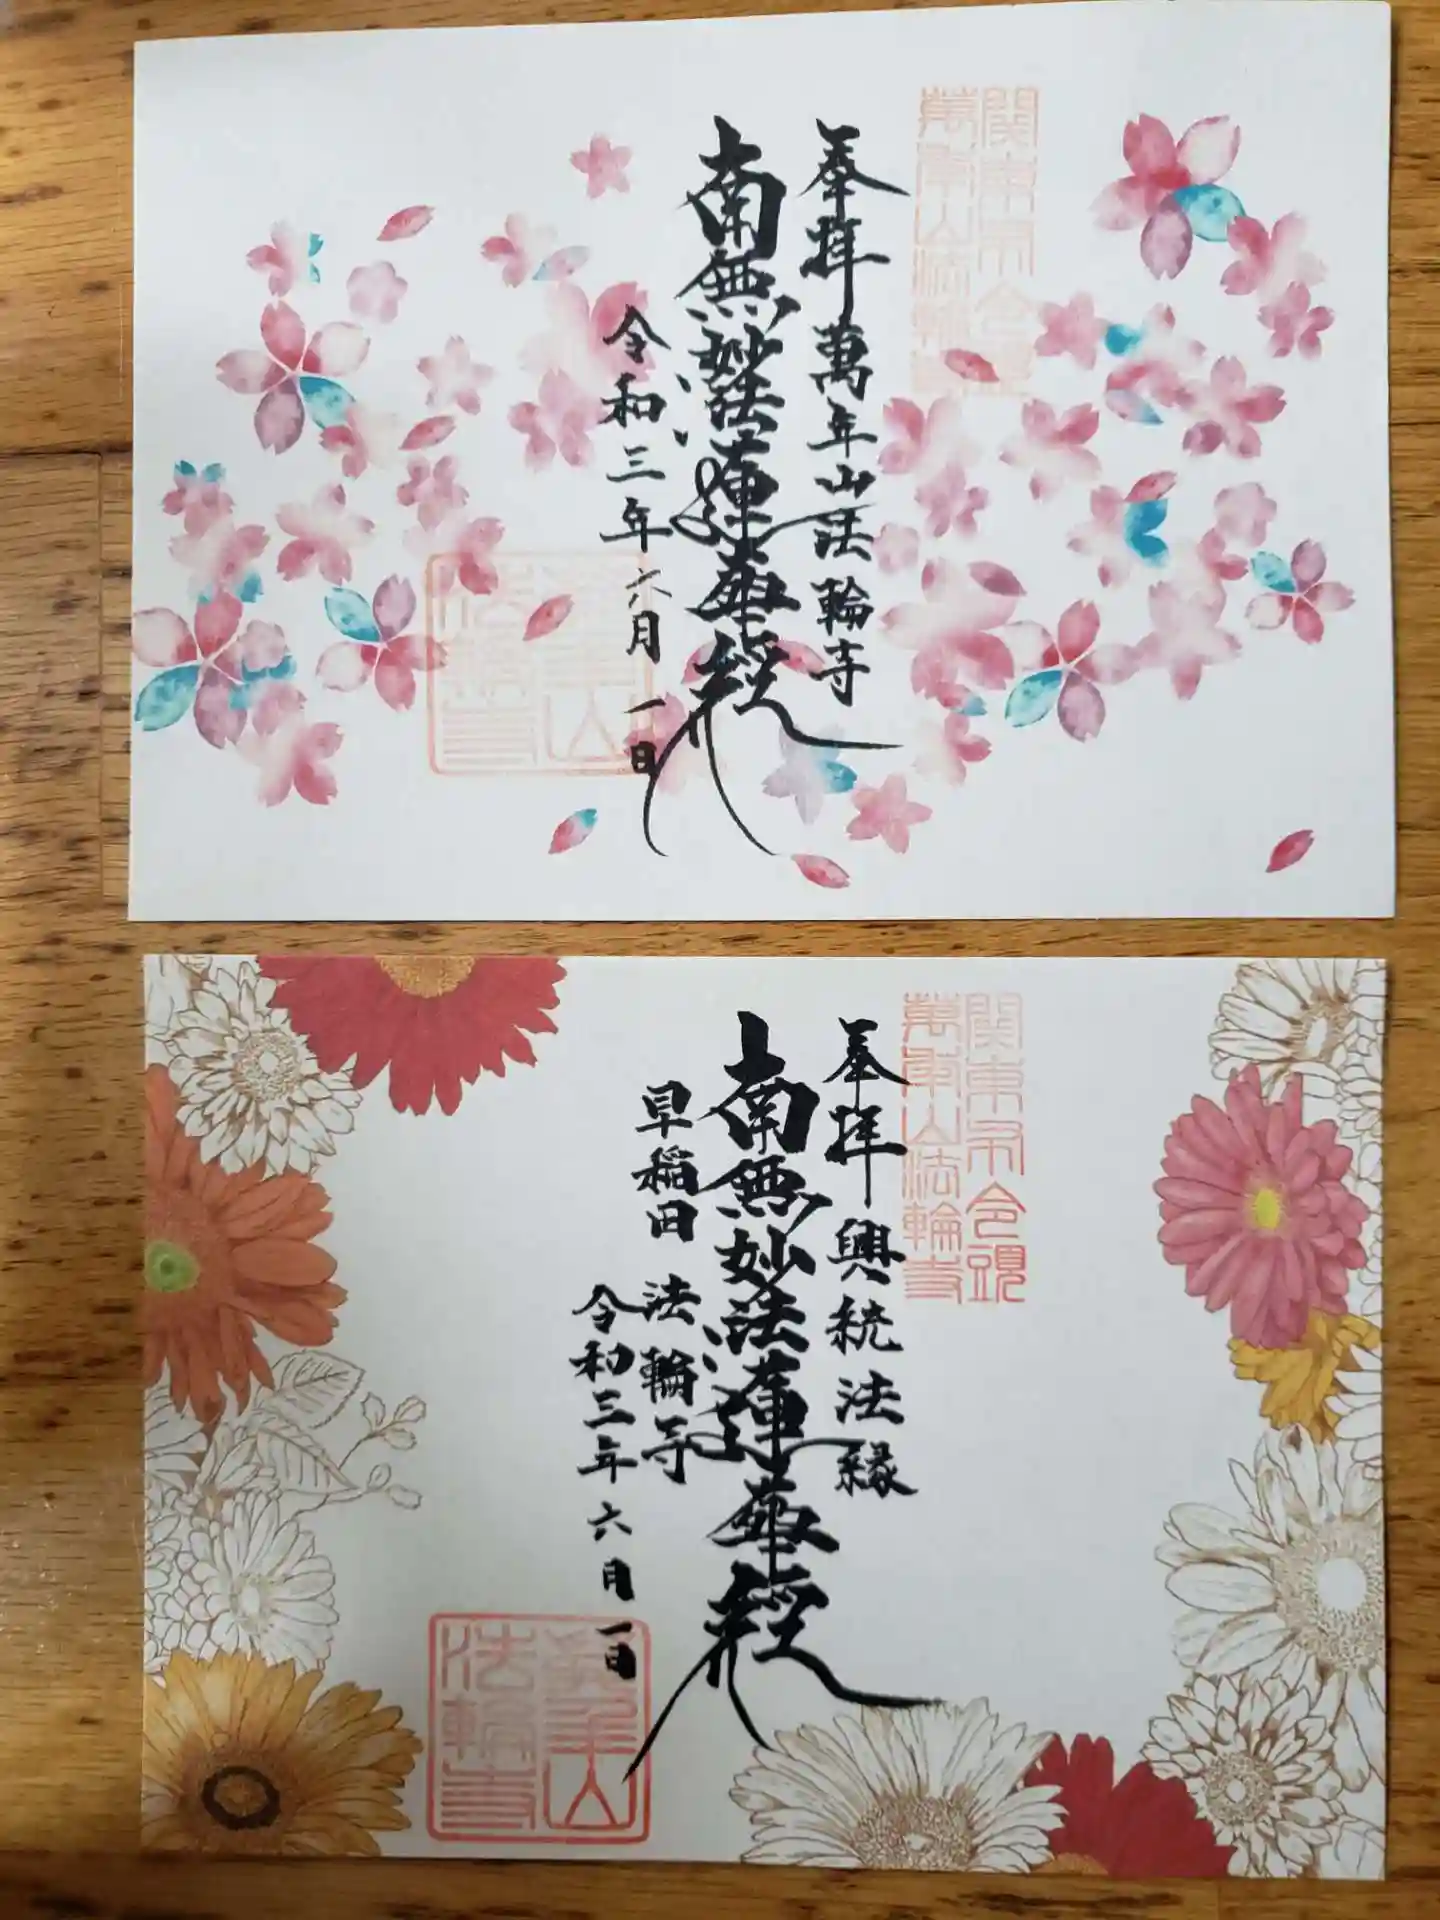 関東不令頭
萬年山法輪寺
奉拝 萬年山法輪寺
南無妙法蓮華経
令和三年六月一日
萬年山
法輪寺
関東不令頭
萬年山法輪寺
奉拝 興統法縁
南無妙法蓮華経
早稲田 法輪寺
令和三年六月一日
萬年山
法輪寺